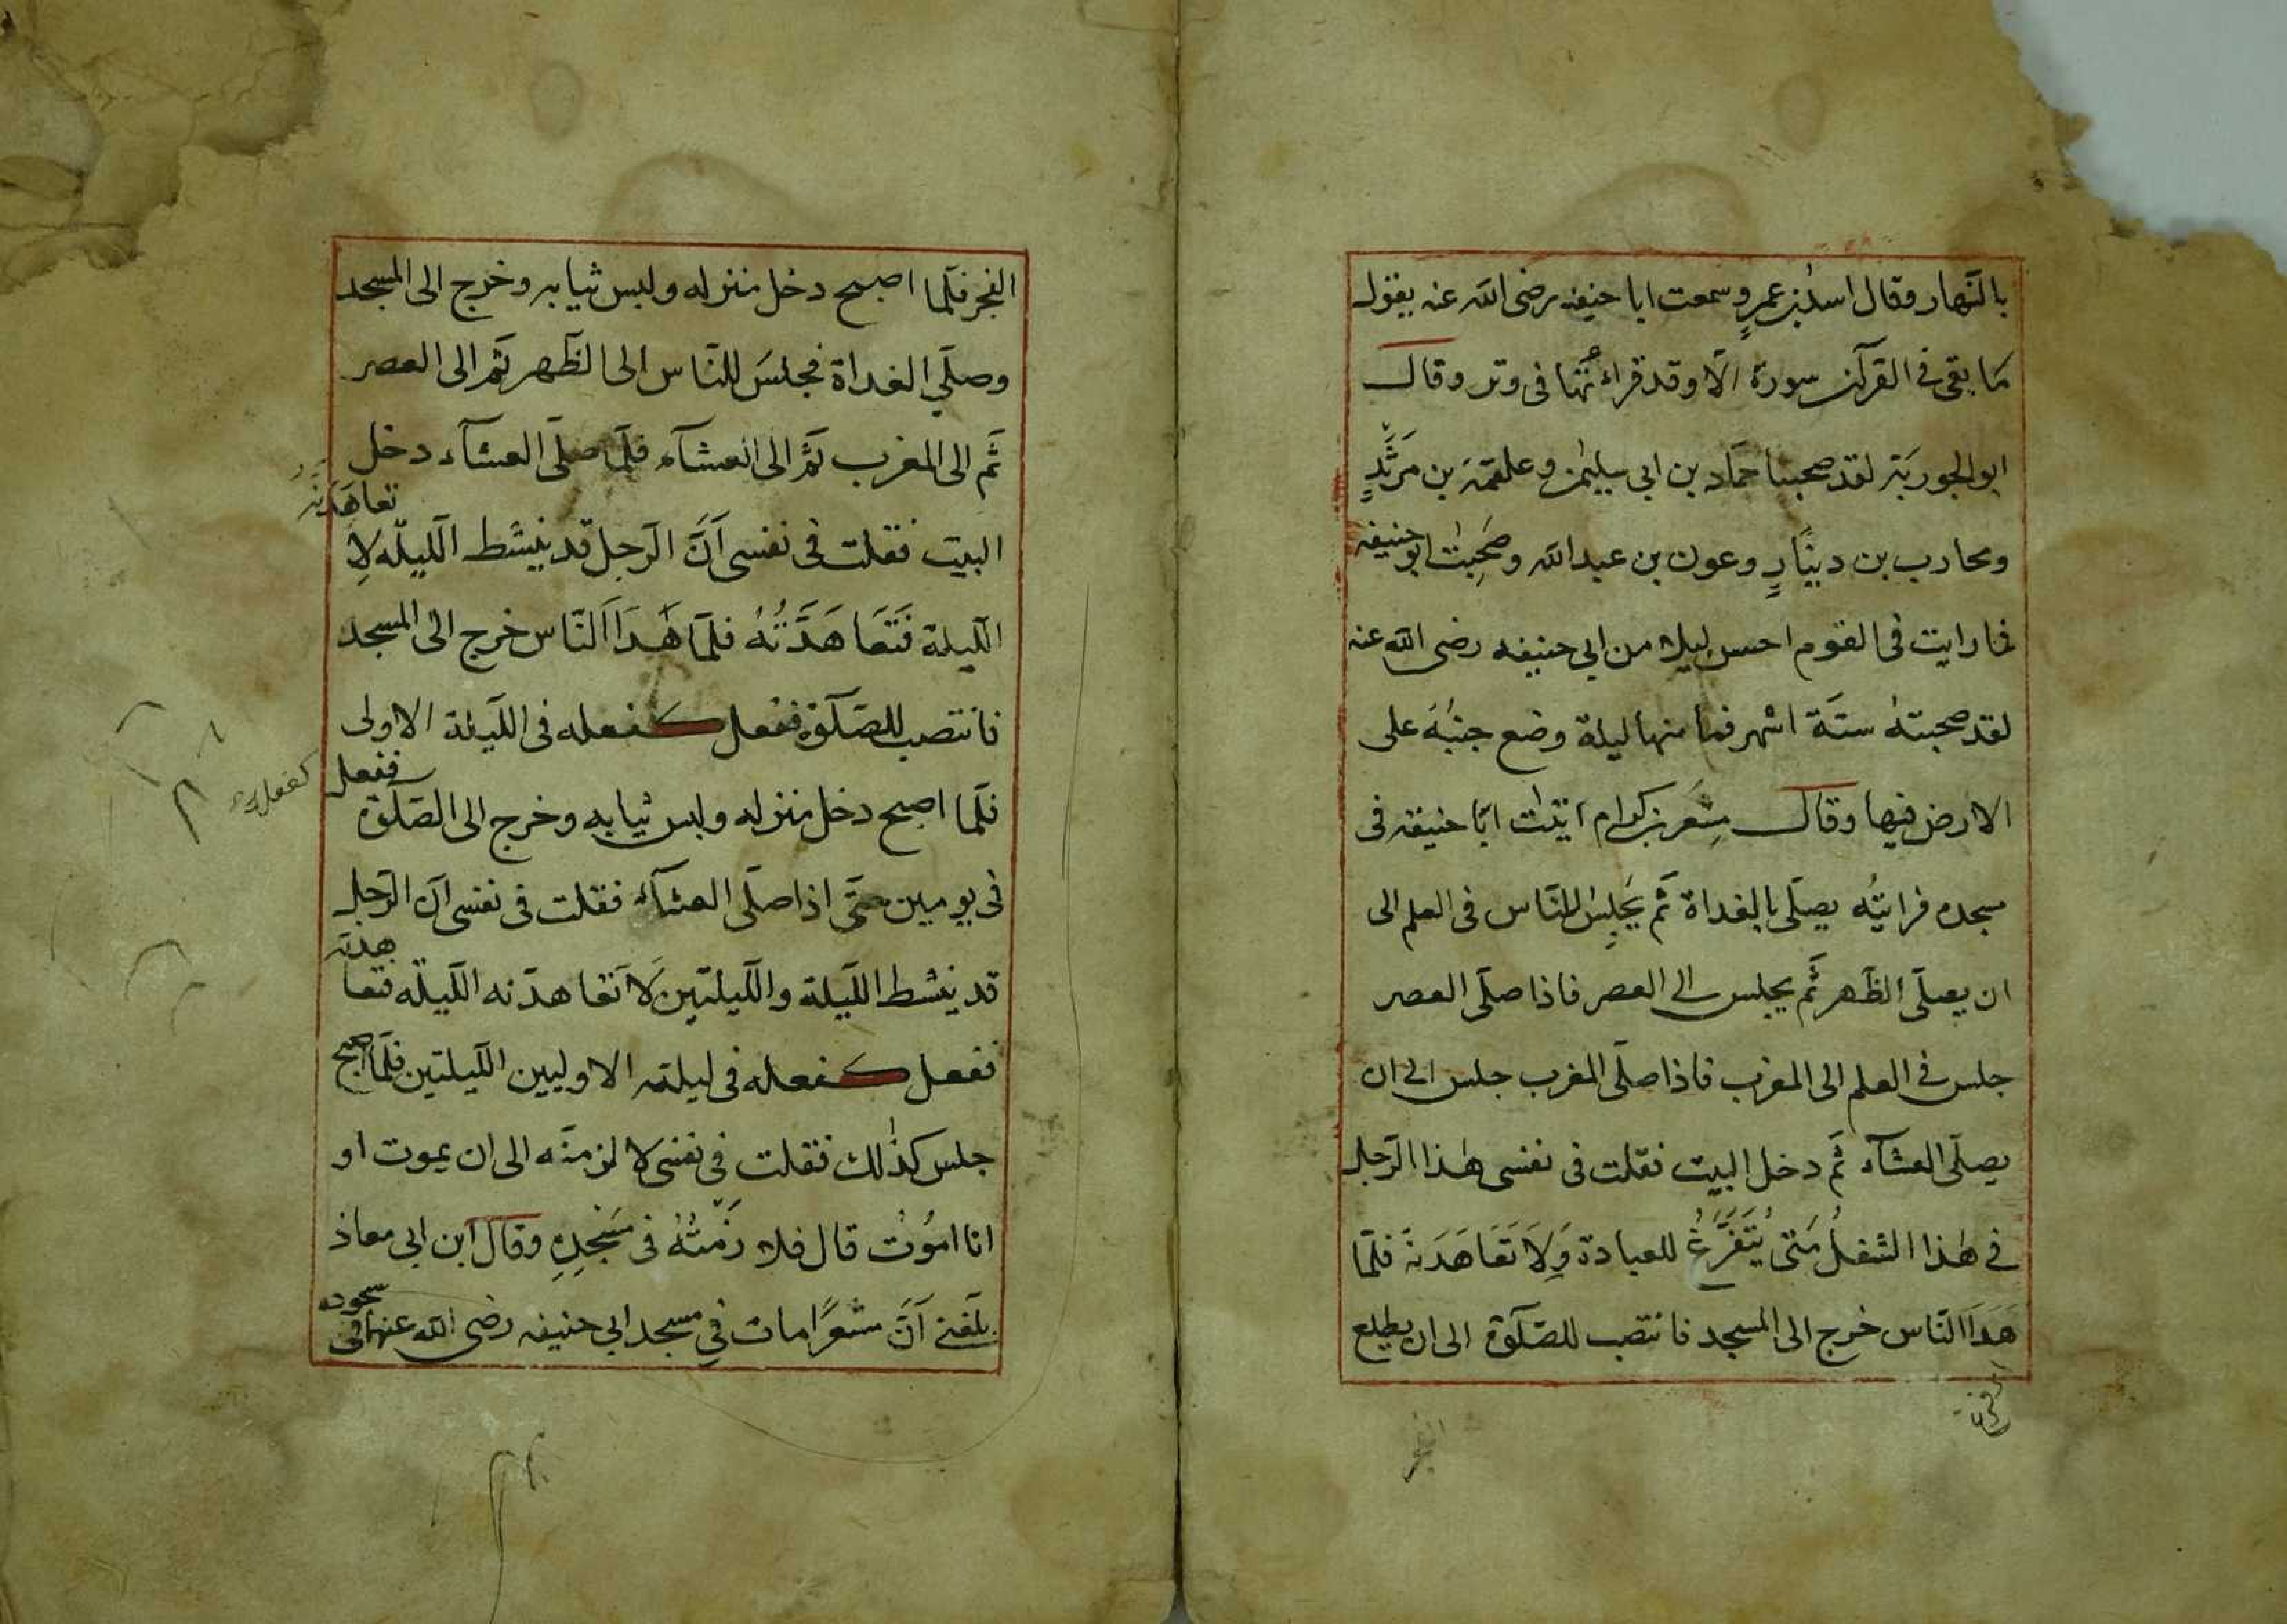 بالنّهار وقال اسد بن عمرٍ وسمعت ابا حنيفه رضى الله عنه يقول
مَا بقى فى القرآن سورة الّا وقد قراءتُها فى وتر وقال
ابو الجوريَة لقد صحبنا حمّاد بن ابى سليمٰن وعلقمَة بن مَرْثَدٍ
ومحارب بن دينَارٍ وعون بن عبد الله وصَحِبْت ابو حنيفه
فما رايت فى القوم احسن ليلا من ابى حنيفه رضى الله عنه
لقد صحبته ستّة اشهر فما منها ليلة وضع جنبَه على
الارض فيها وقال مِسْعَر بن كدام اتيْت ابَا حنيفه فى
مسجده فرايتُه يصلّى بالغداة ثَم يَجلِسُ للنّاس فى العلم الى
ان يصلّى الظّهر ثَم يجلس الى العصر فاذا صلّى العصر
جلس فى العلم الى المغرب فاذا صلّى المغرب جلس الى ان
يصلّى العشآء ثَم دخل البيت فقلت فى نفسى هٰذا الرّجل
فى هٰذا الشغلُ مَتى يُتَفَرَّغُ للعبادة وَلَا تَعَاهَدَنهُ فلمّا
هَدَاَ النّاس خرج الى المسجد فانتصب للصّلٰوة الى ان يطلع
الفجر
الفجر فلّما اصبح دخل منزله ولبس ثيابه وخرج الى المسجد
وصلّى الغداة فجلسَ للنّاس الى الظّهر ثَم الى العصر
ثَم الى المغرب ثَم الى العشآء فلمّا صلّى العشآء دخل
البيت فقلت فى نفسى اَنَّ الرّجل قد ينشط اللّيلّه لاِ
تعاهَدَنّهُ
اللّيلة فَتَعَاهَدَّتُهُ فلمّا هَدَاَ النّاس خرج الى المسجد
فانتصب للصّلٰوة ففعل كفعله فى اللّيلة الاولى
ففعل
كفعله
فلّما اصبح دخل منزله ولبس ثيابه وخرج الى الصّلٰوة
فى يومين حتّى اذا صلّى العشآء فقلت فى نفسى انّ الرّجل
قد ينشط اللّيلة واللّيلتين لَاَتعاهدّنه اللّيلّه فتعا
هدته
ففعل كفعله فى ليلته الاوليين اللّيلتين فلّما اصبح
جلس كذٰلك فقلت فى نفسى لا لزمنّه الى ان يموت او
انا امُوْت قال فلا زَمْتُهُ فى مَسْجِدِهِ وقال ابن ابى معاذ
بلَغنى اَنَّ مسْعَرًا مات فى مسجد ابى حنيفه رضى الله عنهما فى
سجوده